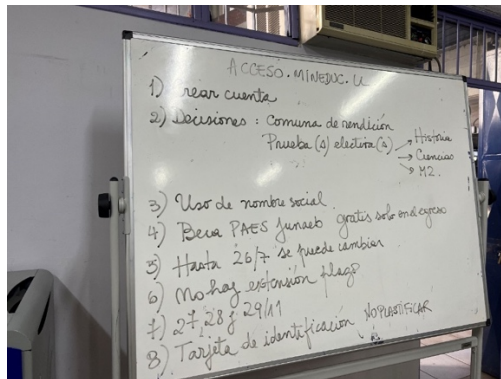 ACCESO.MINEDUC.CL
1) Crear cuenta
2) Decisiones : Comuna de rendición
Prueba (s) electiva (s) → Historia
→ Ciencias
→ M2.
3) Uso de nombre social
4) Beca PAES Junaeb gratis solo en el egreso
5) Hasta 26/7 se puede cambiar
6) No hay extensión plazo
7) 27, 28 y 29/11
8) Tarjeta de identificación NO PLASTIFICAR